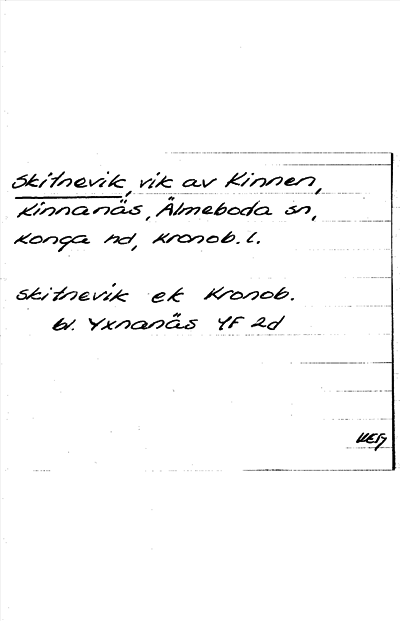 Skitnevik, vik av Kinnen,
Kinnanäs, Älmeboda sn,
Konga hd, Kronob. l.
Skitnevik ek Kronob.
bl. Yxnanäs 4F 2d